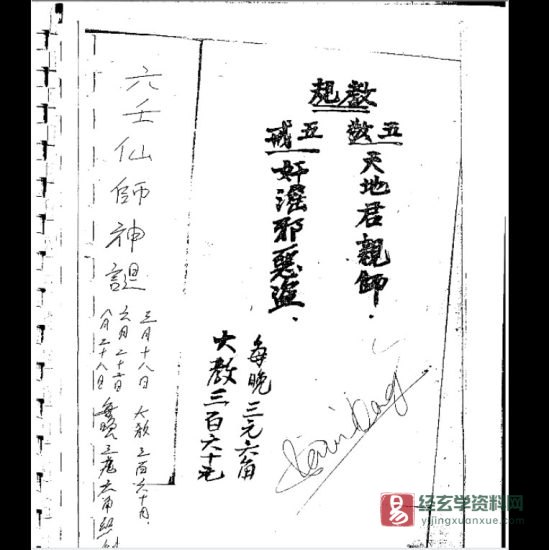 教規
五敬
天地君親師.
五戒
奸淫邪惡盜.
每晚三元六角
大教三百六十元
六壬仙師神誕
三月十八日 大教三百六十
八月二十八日 每晚三元六角
经玄学资料网
yijingxuanxue.com